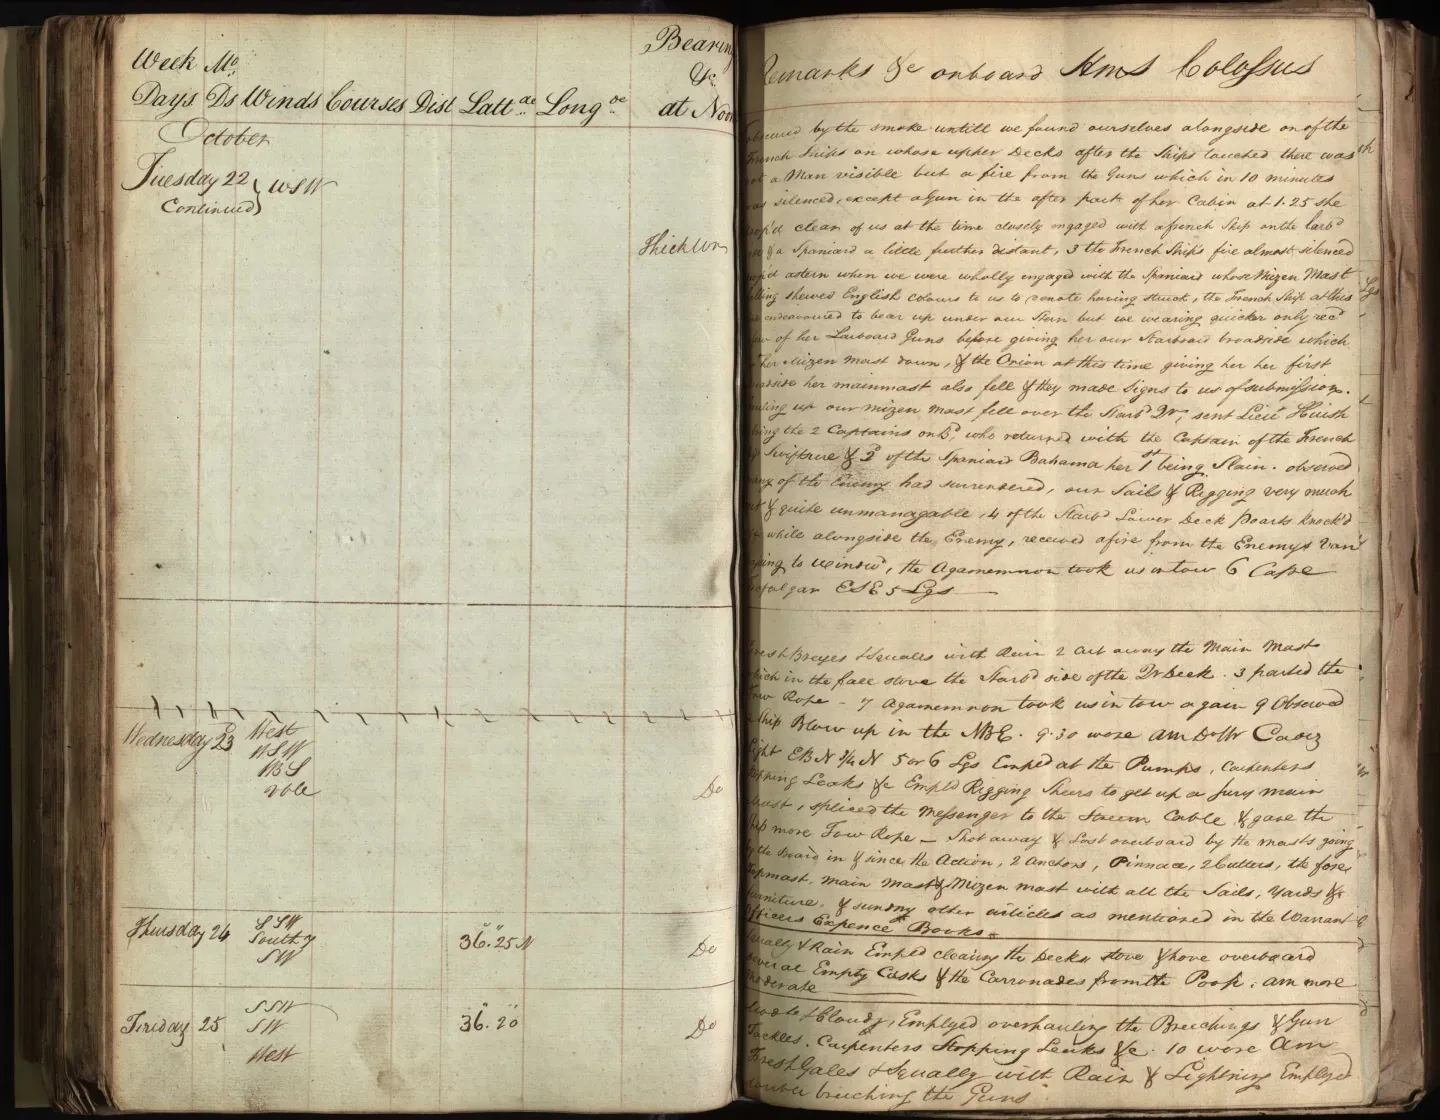 Week Mo
Days Ds Winds Courses Dist Latt de Long de
Bearing
&c
at Noon
October
Tuesday 22
Continued
WSW
Thick Wr
Wednesday 23
West
WSW
WBS
vble
Do
Thursday 24
SSW
South y
SW
36.25 N
Do
Friday 25
SSW
SW
West
36.20
Do
Remarks &c onboard Hms Colossus
by the smoke untill we found ourselves alongside on of the
French Ships on whose upper Decks after the Ships touched there was
a Man visible but a fire from the Guns which in 10 minutes
silenced, except a Gun in the after part of her Cabin at 1.25 she
clear of us at the time closely engaged with a french Ship on the larbd
& a Spaniard a little further distant, 3 the French Ship's fire almost silenced
astern when we were wholly engaged with the Spaniard whose Mizen Mast
shewed English colours to us to denote having struck, the French Ship at this
endeavoured to bear up under our Stern but we wearing quicker only recd
of her Larboard Guns before giving her our Starboard broadside which
her Mizen Mast down, & the Orion at this time giving her her first
her mainmast also fell & they made Signs to us of submission.
up our mizen mast fell over the Starbd Qr, sent Lieut Huish
the 2 Captains onbd, who returned with the Captain of the French
Swiftsure & 2d of the Spaniard Bahama her 1st being Slain. observed
of the Enemy had surrendered, our Sails & Rigging very much
& quite unmanagable, 4 of the Starbd Lower Deck Poarts knock'd
while alongside the Enemy, received a fire from the Enemys Van
to windwd, the Agamemnon took us in tow 6 Cape
ESE 5 Lgs
Fresh Breezes & Squales with Rain 2 Cut away the Main Mast
which in the fall stove the Starbd side of the Qr Deck. 3 parted the
Tow Rope - 7 Agamemnon took us in tow again 9 Observed
Ship Blow up in the NBE. 9.30 wore am Do Wr Cadiz
Light EBN 3/4 N 5 or 6 Lgs Empd at the Pumps, Carpenters
Stopping Leaks &c Empld Rigging Sheers to get up a Jury main
mast, spliced the Messenger to the Stream Cable & gave the
Ship more Tow Rope - Shot away & Lost overboard by the masts going
by the Board in & since the Action, 2 Anchors, Pinnace, 2 Cutters, the fore
topmast, Main Mast & Mizen mast with all the Sails, Yards &
furniture. & sundry other articles as mentioned in the Warrant
Officers Expence Books.
Squally & Rain Empld clearing the Decks stove & hove overboard
several Empty Casks & the Carronades from the Poop. am more
moderate
& Cloudy, Employed overhauling the Breechings & Gun
Tackles. Carpenters Stopping Leaks &c. 10 wore Am
Fresh Gales & Squally with Rain & Lightning Employd
breeching the Guns